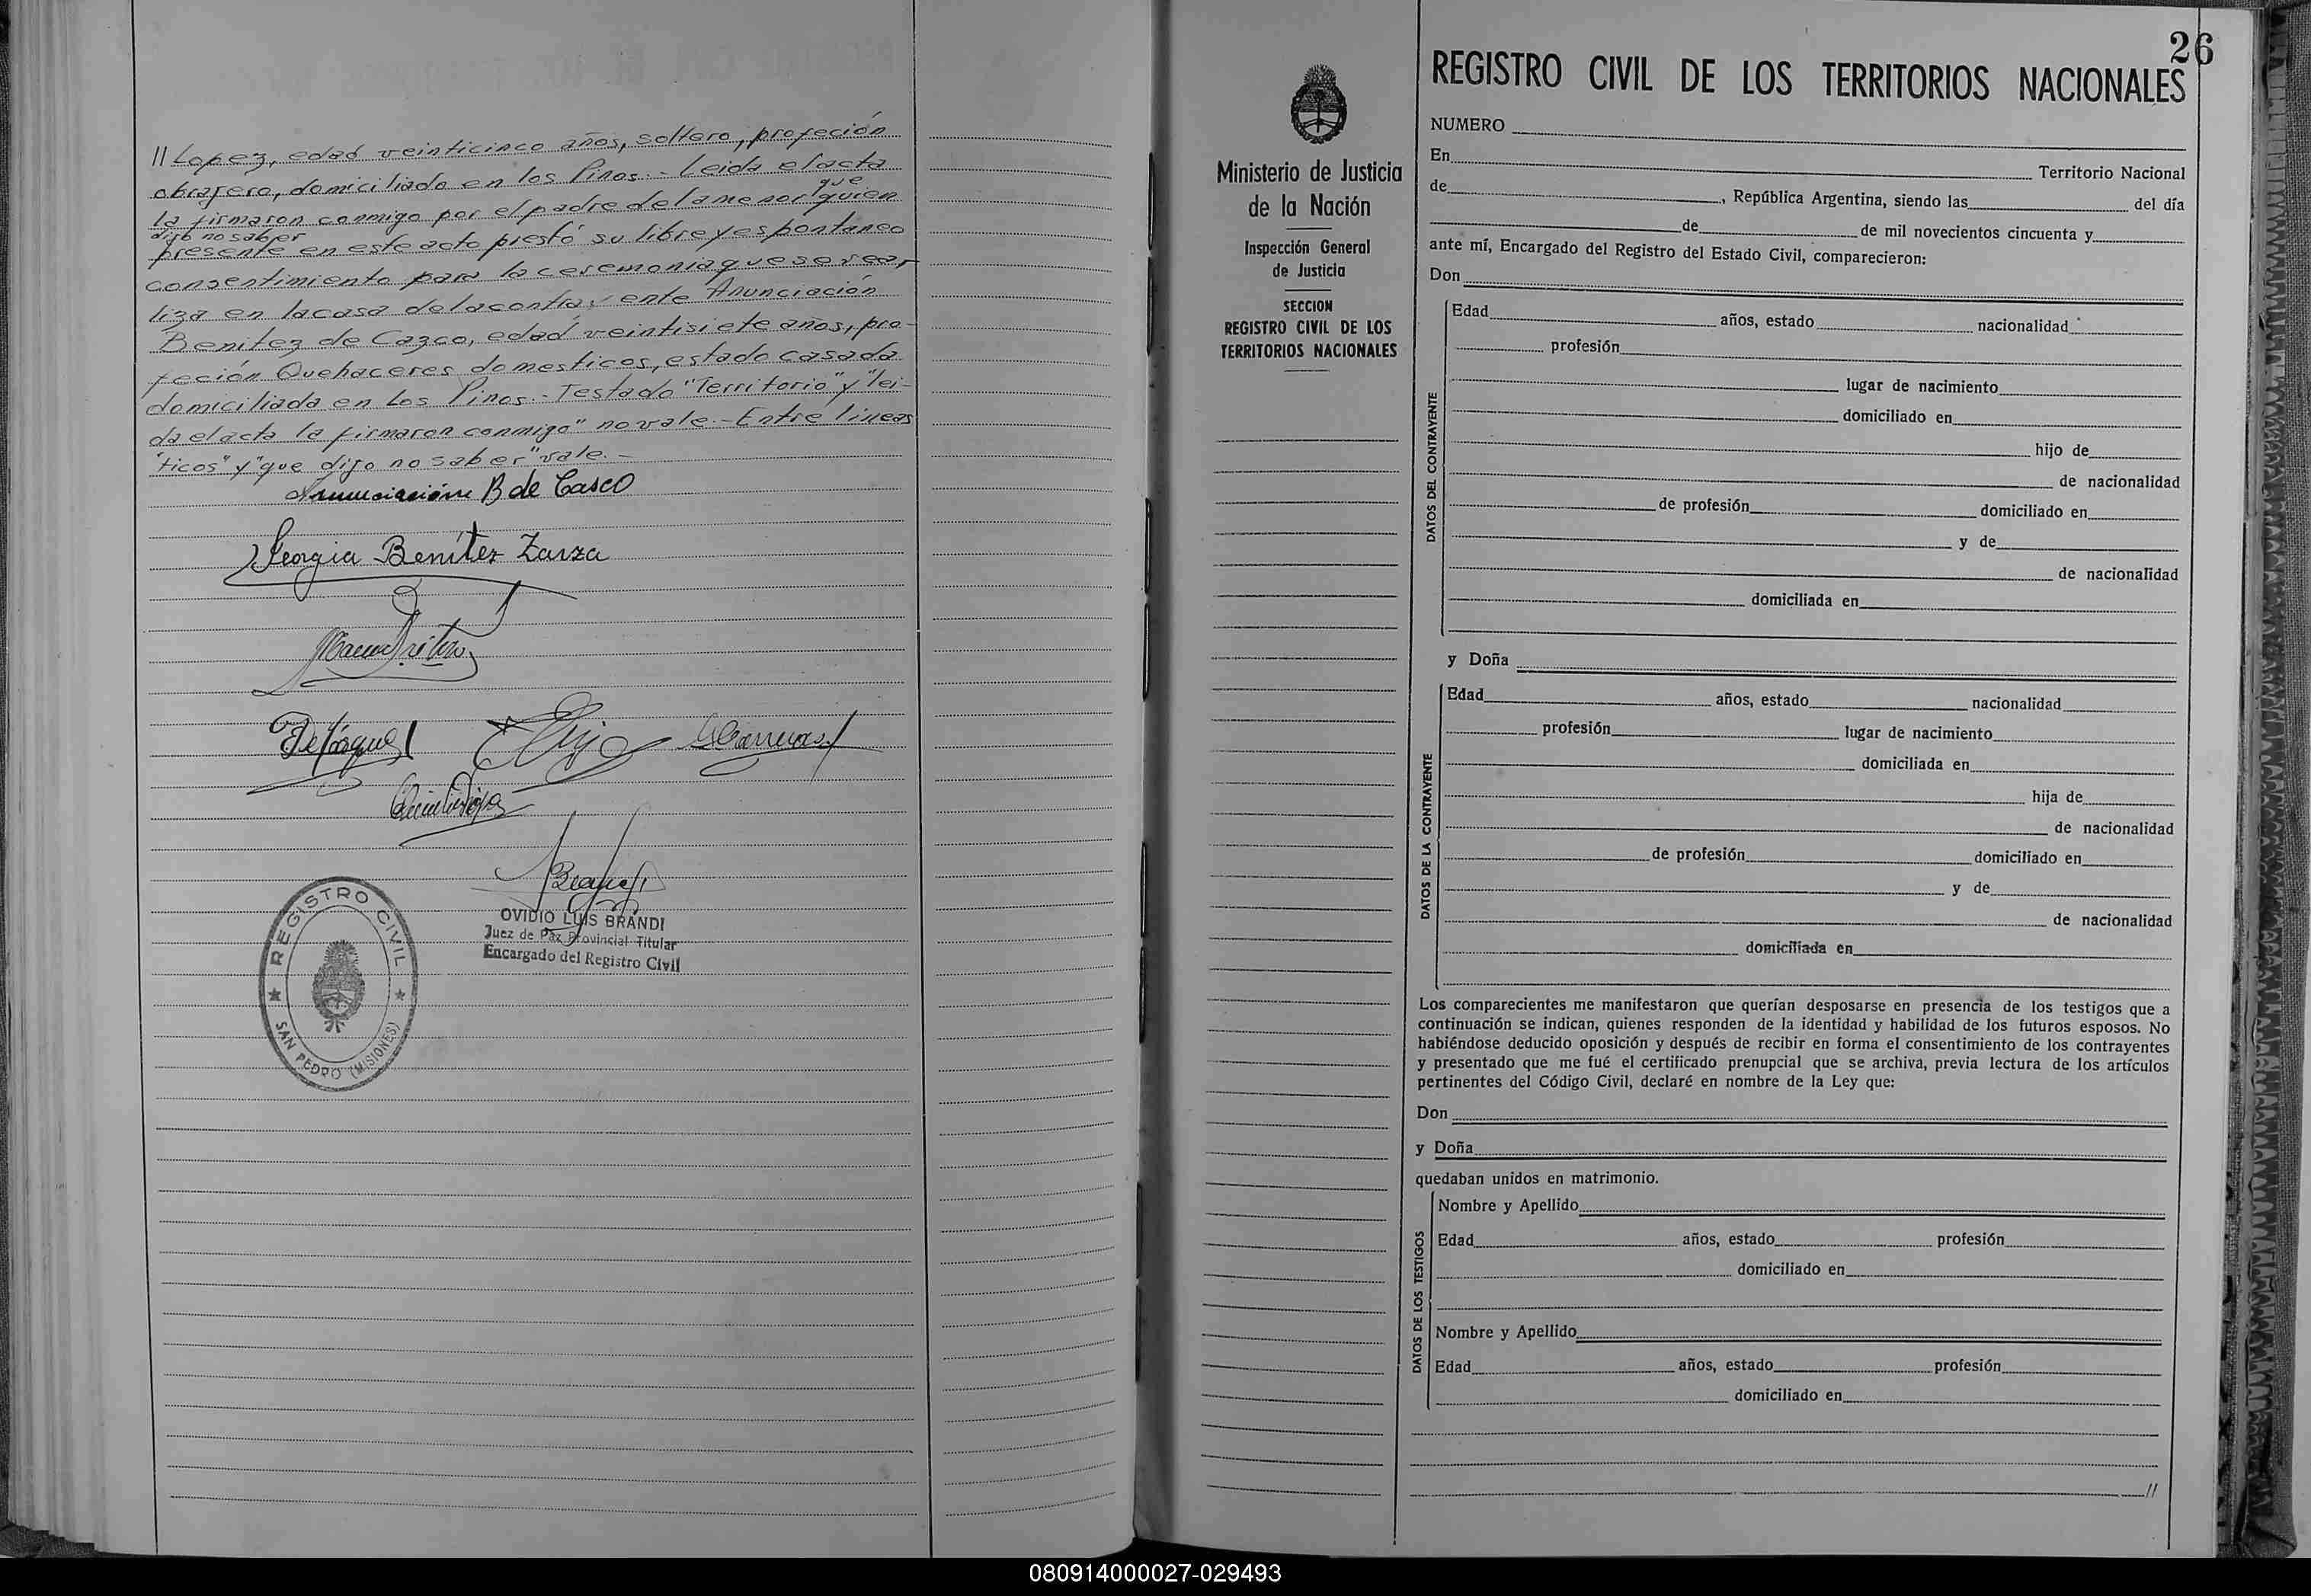 // Lopez, edad veinticinco años, soltero, profeción
obrajero, domiciliado en los Pinos.- Leida el acta
que
la firmaron conmigo por el padre de la menor quien
dijo no saber
presente en este acto prestó su libre y espontaneo
consentimiento para la ceremonia que se rea-
liza en la casa de la contrayente Anunciación
Benitez de Cazco, edad veintisiete años, pro-
feción Quehaceres domesticos, estado casada
domiciliada en Los Pinos.- Testado "Territorio" y "lei-
da el acta la firmaron conmigo" no vale.- Entre lineas
"ticos" y "que dijo no saber" vale.-
Anunciación B de Casco
Georgia Benítez Zarza
OVIDIO LUIS BRANDI
Juez de Paz Provincial Titular
Encargado del Registro Civil
REGISTRO CIVIL
SAN PEDRO (MISIONES)
26
REGISTRO CIVIL DE LOS TERRITORIOS NACIONALES
Ministerio de Justicia
de la Nación
Inspección General
de Justicia
SECCION
REGISTRO CIVIL DE LOS
TERRITORIOS NACIONALES
NUMERO
En Territorio Nacional
de , República Argentina, siendo las del día
de de mil novecientos cincuenta y
ante mí, Encargado del Registro del Estado Civil, comparecieron:
Don
DATOS DEL CONTRAYENTE
Edad años, estado nacionalidad
profesión
lugar de nacimiento
domiciliado en
hijo de
de nacionalidad
de profesión domiciliado en
y de
de nacionalidad
domiciliada en
y Doña
DATOS DE LA CONTRAYENTE
Edad años, estado nacionalidad
profesión lugar de nacimiento
domiciliada en
hija de
de nacionalidad
de profesión domiciliado en
y de
de nacionalidad
domiciliada en
Los comparecientes me manifestaron que querían desposarse en presencia de los testigos que a
continuación se indican, quienes responden de la identidad y habilidad de los futuros esposos. No
habiéndose deducido oposición y después de recibir en forma el consentimiento de los contrayentes
y presentado que me fué el certificado prenupcial que se archiva, previa lectura de los artículos
pertinentes del Código Civil, declaré en nombre de la Ley que:
Don
y Doña
quedaban unidos en matrimonio.
DATOS DE LOS TESTIGOS
Nombre y Apellido
Edad años, estado profesión
domiciliado en
Nombre y Apellido
Edad años, estado profesión
domiciliado en
//
080914000027-029493